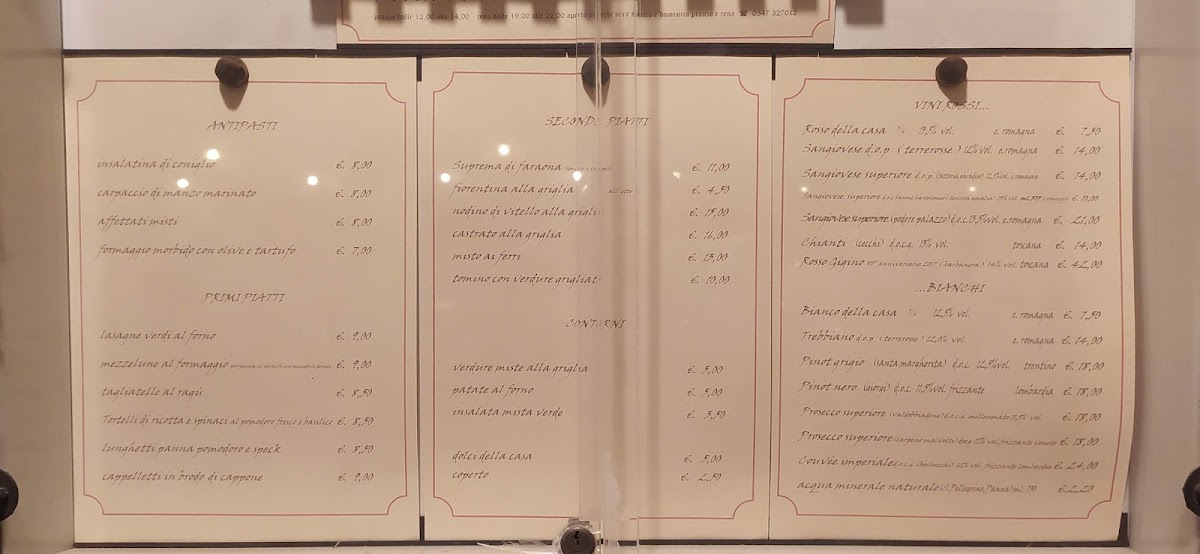 pranzo dalle 12,00 alle 14,00 - cena dalle 19,00 alle 22,00 aperto sabato e domenica pranzo e cena ☎ 0547 327012
ANTIPASTI
insalatina di coniglio €. 8,00
carpaccio di manzo marinato €. 8,00
affettati misti €. 8,00
formaggio morbido con olive e tartufo €. 7,00
PRIMI PIATTI
lasagne verdi al forno €. 9,00
mezzelune al formaggio €. 9,00
tagliatelle al ragù €. 8,50
Tortelli di ricotta e spinaci al pomodoro fresco e basilico €. 8,50
lunghetti panna pomodoro e speck €. 8,50
cappelletti in brodo di cappone €. 9,00
SECONDI PIATTI
Suprema di faraona €. 11,00
fiorentina alla griglia all'etto €. 4,50
nodino di vitello alla griglia €. 15,00
castrato alla griglia €. 16,00
misto ai ferri €. 13,00
tomino con verdure grigliate €. 10,00
CONTORNI
verdure miste alla griglia €. 5,00
patate al forno €. 5,00
insalata mista verde €. 3,50
dolci della casa €. 5,00
coperto €. 2,50
VINI ROSSI...
Rosso della casa 13,5% vol. e. romagna €. 7,50
Sangiovese d.o.p (terrerosse) 12% vol. e.romagna €. 14,00
Sangiovese superiore d.o.p. (fattoria paradiso) e.romagna €. 14,00
Sangiovese superiore
Sangiovese superiore (podere palazzo) d.o.c. 13,5%vol. e.romagna €. 21,00
Chianti (cecchi) d.o.c.g. 13% vol. toscana €. 14,00
Rosso Gigino anniversario 2017 (barbanera) 14% vol. toscana €. 42,00
...BIANCHI
Bianco della casa 12,5% vol. e. romagna €. 7,50
Trebbiano d.o.p (terrerosse) 12,0% vol. e. romagna €. 14,00
Pinot grigio (santa margherita) d.o.c. 12,5%vol. trentino €. 18,00
Pinot nero (giorgi) d.o.c. 11,5%vol. frizzante lombardia €. 18,00
Prosecco superiore (valdobbiadene) d.o.c.g. millesimato 11,5% vol. €. 18,00
Prosecco superiore (carpenè malvolti) docg 11% vol. frizzante veneto €. 18,00
Couvée imperiale d.o.c.g. (berlucchi) 12% vol. frizzante lombardia €. 24,00
acqua minerale naturale (S.Pellegrino,Panna) ml. 750 €. 2,20